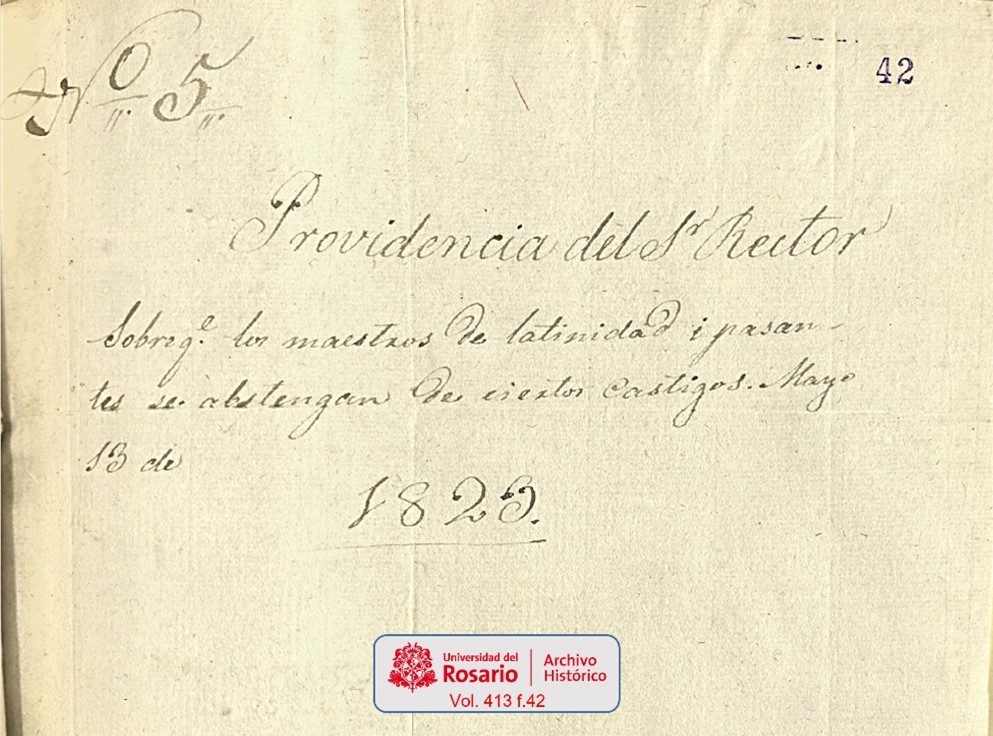 Nº 5
42
Providencia del Sr Rector
Sobre qe. los maestros de latinidad i pasan-
tes se abstengan de ciertos castigos. Mayo
13 de
1823.
Universidad del
Rosario
Archivo
Histórico
Vol. 413 f.42